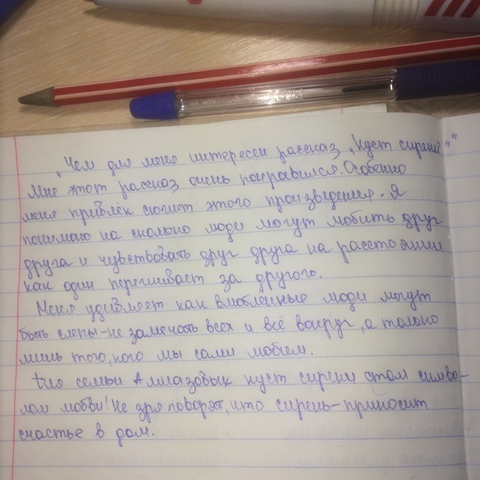 „Чем для меня интересен рассказ „Куст сирени"."
Мне этот рассказ очень понравился. Особенно
меня привлёк сюжет этого произведения. Я
понимаю на сколько люди могут любить друг
друга и чувствовать друг друга на расстоянии
как один переживает за другого.
Меня удивляет как влюблённые люди могут
быть слепы-не замечать всех и всё вокруг, а только
лишь того, кого мы сами любим.
Для семьи Алмазовых куст сирени стал симво-
лом любви! Не зря говорят, что сирень-приносит
счастье в дом.